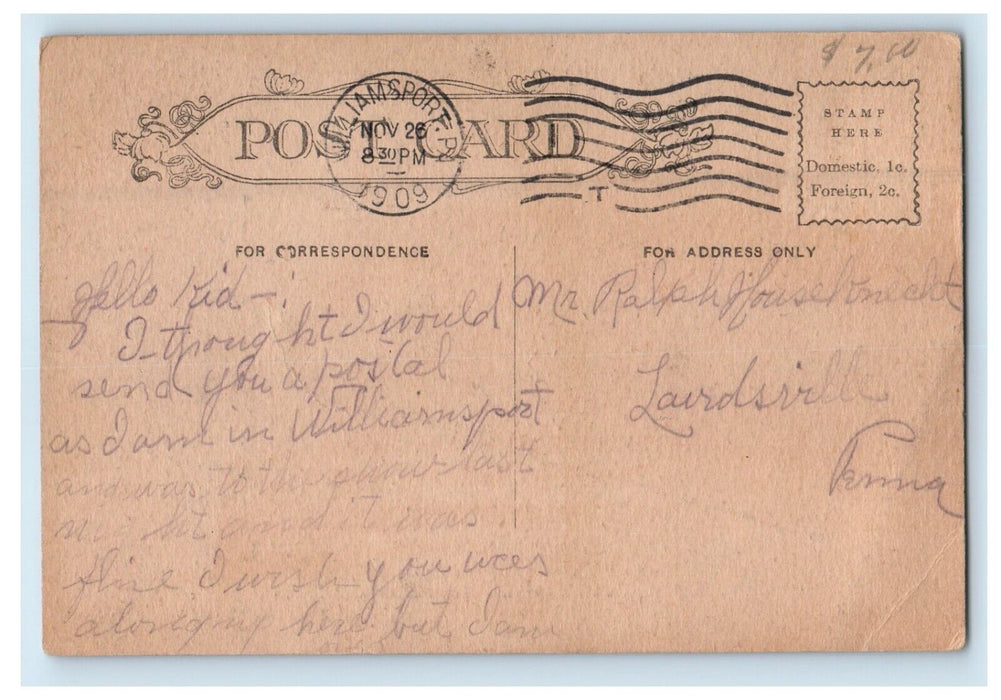 $ 7.00
POST CARD
WILLIAMSPORT, PA.
NOV 26
8 30 PM
1909
T
STAMP
HERE
Domestic, 1c.
Foreign, 2c.
FOR CORRESPONDENCE
FOR ADDRESS ONLY
Hello Kid -
I thought I would
send you a postal
as I am in Williamsport
and was to the show last
night and it was
fine I wish you wer
here but I am
Mr. Ralph Houseknecht
Lairdsville
Penna